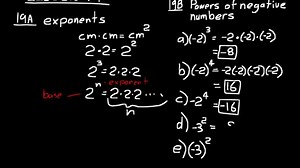 19A exponents
cm·cm = cm²
2·2 = 2²
2³ = 2·2·2
exponent
base
2ⁿ = 2·2·2····
n
19B Powers of negative
numbers
a)(-2)³ = -2·(-2)·(-2)
= -8
b)(-2)⁴ = -2(-2)(-2)(-2)
= 16
c) -2⁴ = -16
d) -3² =
e)(-3)²